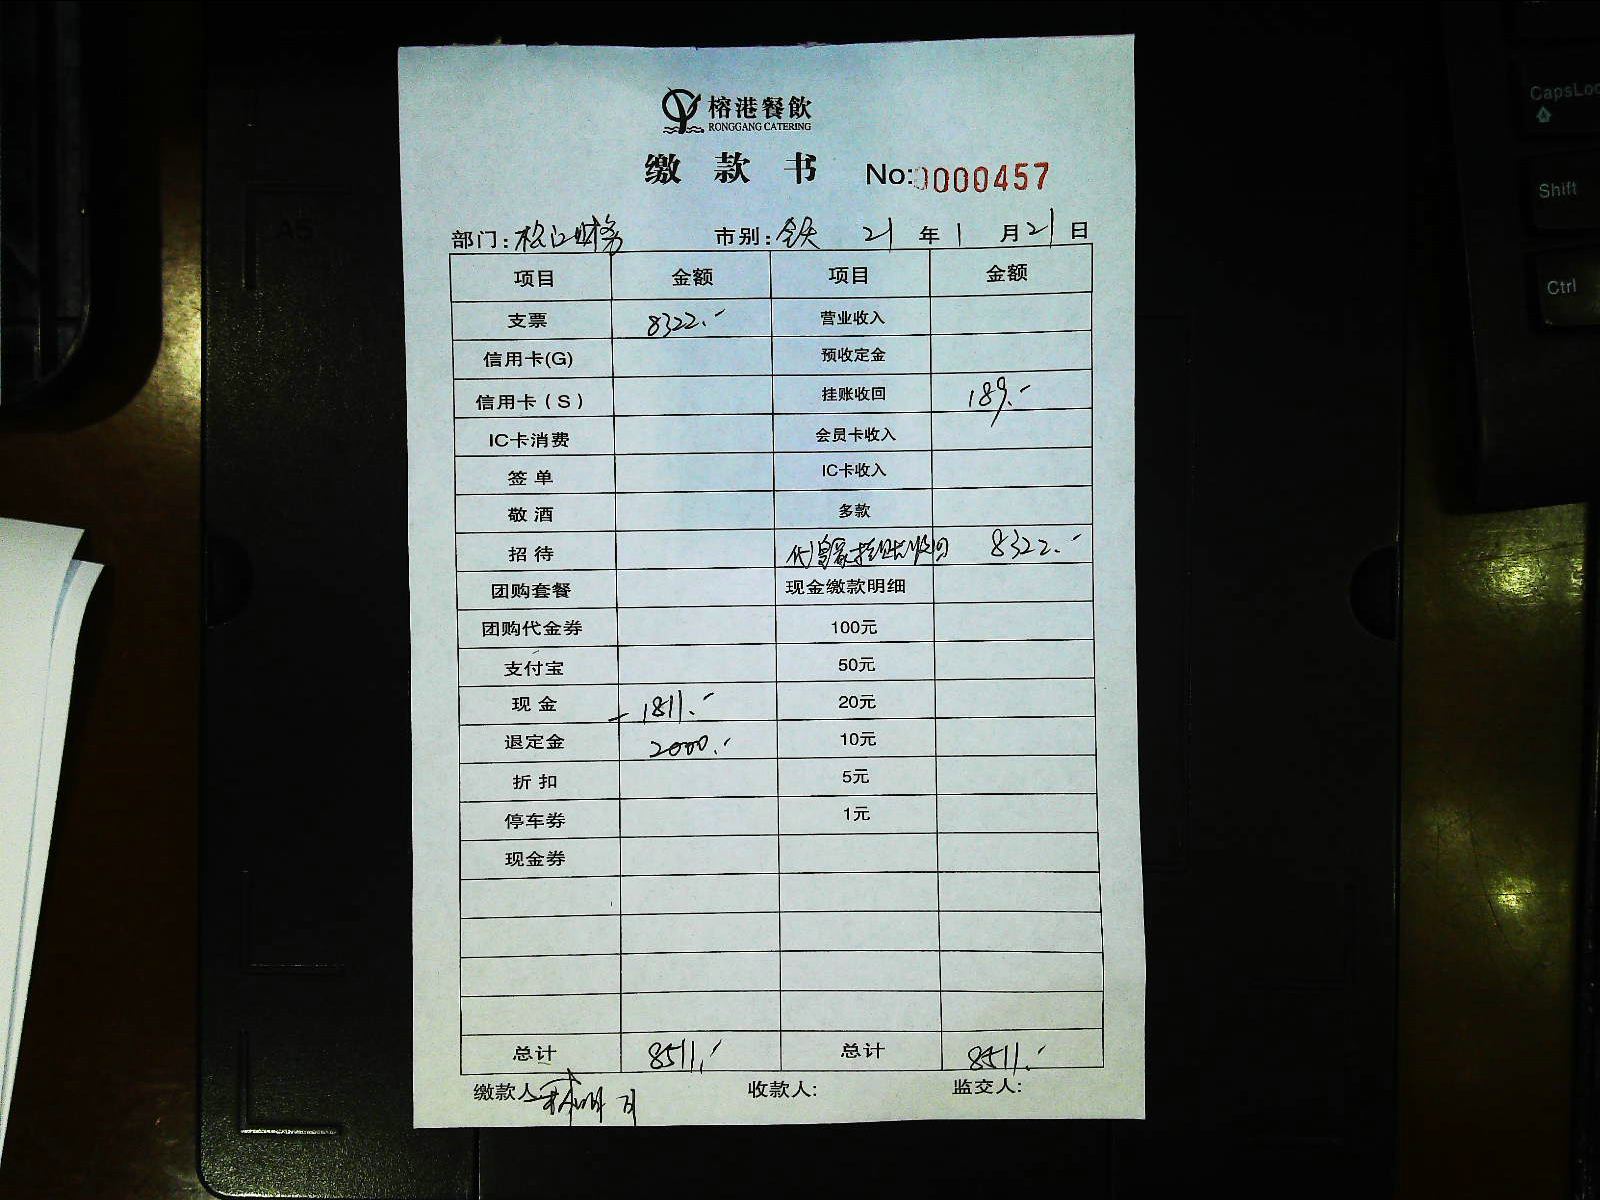 榕港餐飲
RONGGANG CATERING
缴款书 No:0000457
部门: 松江财务 市别: 全天 21 年 1 月 21 日
项目 金额 项目 金额
支票 8322.- 营业收入
信用卡(G) 预收定金
信用卡(S) 挂账收回 189.-
IC卡消费 会员卡收入
签单 IC卡收入
敬酒 多款
招待 挂账收回 8322.-
团购套餐 现金缴款明细
团购代金券 100元
支付宝 50元
现金 -1811.- 20元
退定金 2000.- 10元
折扣 5元
停车券 1元
现金券
总计 8511.- 总计 8511.-
缴款人 收款人: 监交人:
A5
CapsLoc
Shift
Ctrl